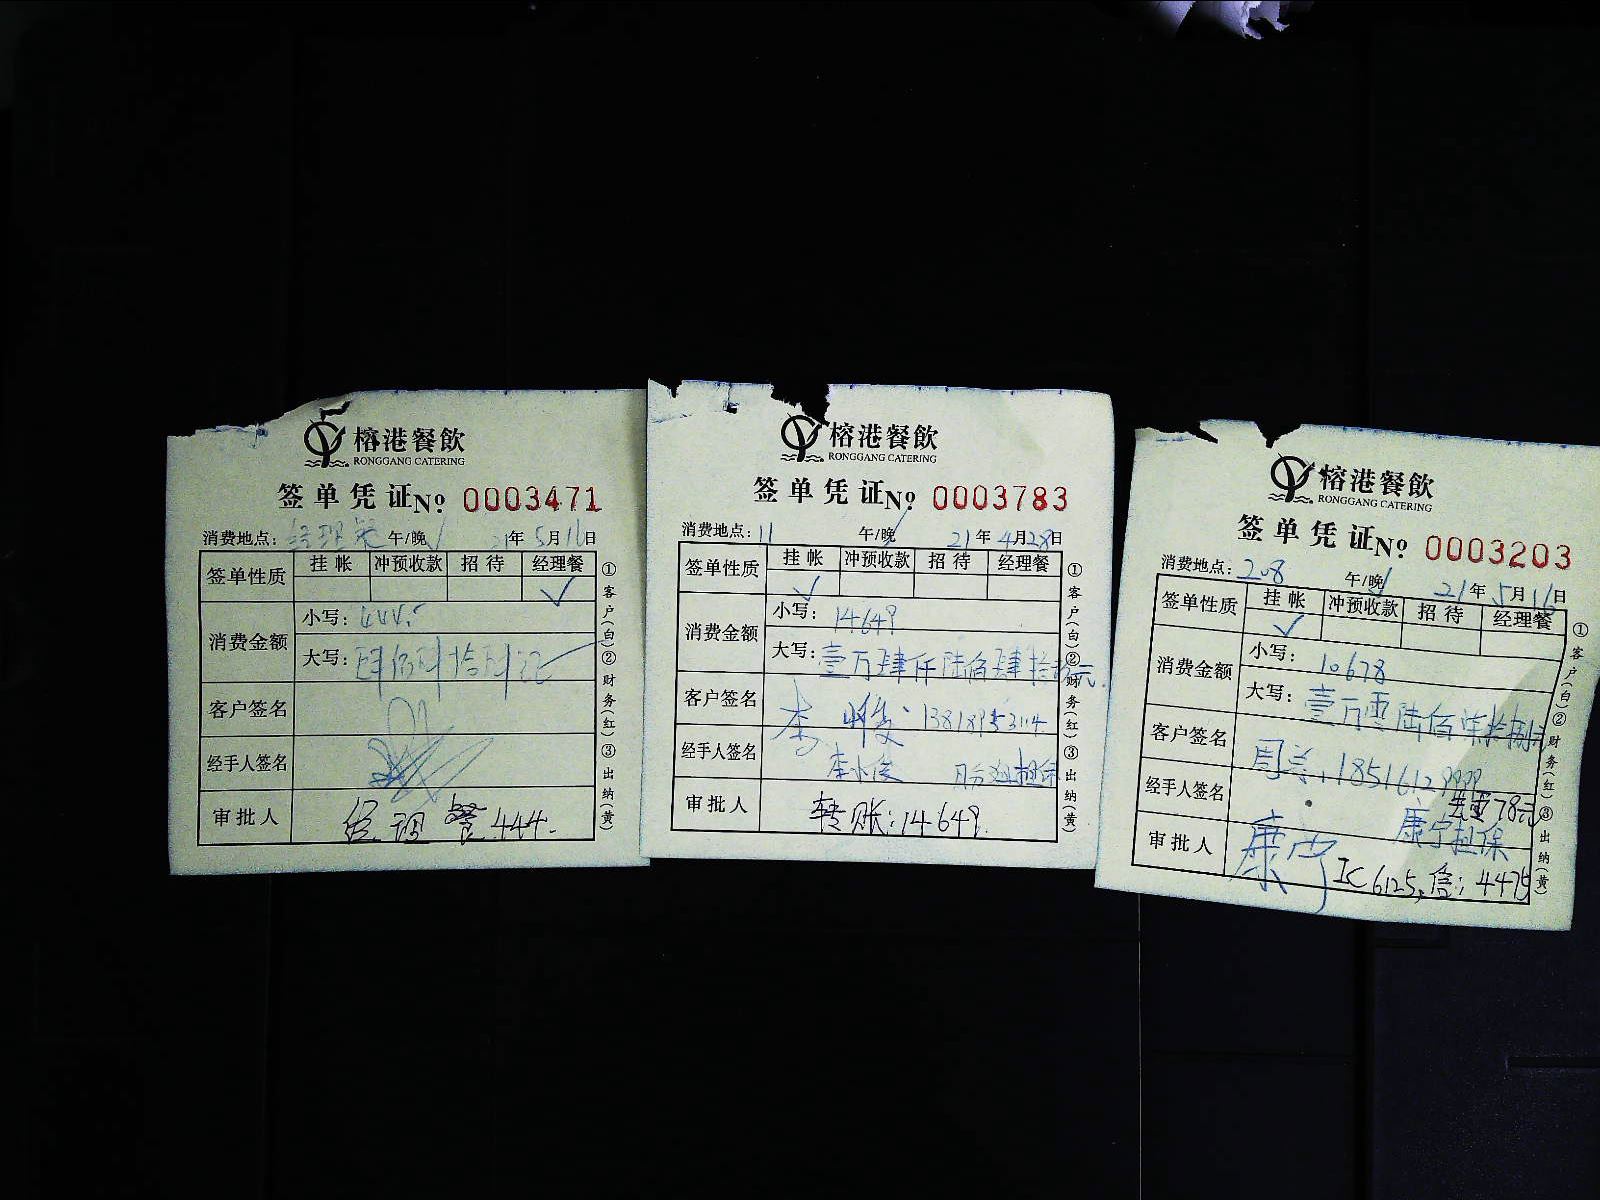 榕港餐飲
RONGGANG CATERING
签单凭证 No 0003471
消费地点： 经理餐 午/晚 21年5月16日
签单性质 挂帐 冲预收款 招待 经理餐
✓
消费金额 小写： 444.-
大写： 肆佰肆拾肆元
客户签名
经手人签名
审批人 经理餐 444.
①客户(白)②财务(红)③出纳(黄)
榕港餐飲
RONGGANG CATERING
签单凭证 No 0003783
消费地点： 11 午/晚 21年4月28日
签单性质 挂帐 冲预收款 招待 经理餐
✓
消费金额 小写： 14649
大写： 壹万肆仟陆佰肆拾玖元.
客户签名 李
经手人签名 担保
审批人 转账：14649.
①客户(白)②财务(红)③出纳(黄)
榕港餐飲
RONGGANG CATERING
签单凭证 No 0003203
消费地点： 208 午/晚 21年5月16日
签单性质 挂帐 冲预收款 招待 经理餐
✓
消费金额 小写： 10678
大写： 壹万零陆佰柒拾捌元
客户签名 周
经手人签名 78元
康宁担保
审批人 康宁 IC 6125, 信：4475
①客户(白)②财务(红)③出纳(黄)